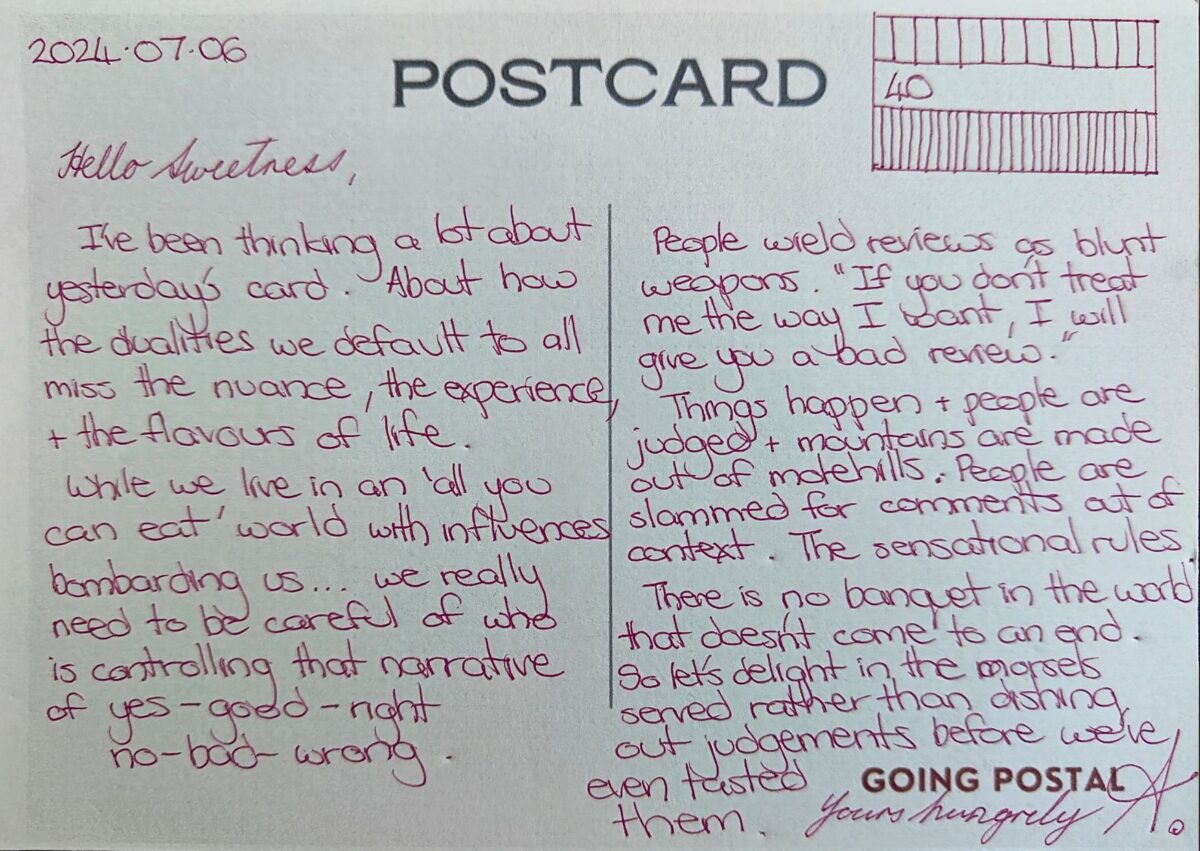 2024·07·06
POSTCARD
40
Hello Sweetness,
I've been thinking a lot about
yesterday's card. About how
the dualities we default to all
miss the nuance, the experience,
+ the flavours of life.
While we live in an 'all you
can eat' world with influences
bombarding us... we really
need to be careful of who
is controlling that narrative
of yes-good-right
no-bad-wrong.
People wield reviews as blunt
weapons. "If you don't treat
me the way I want, I will
give you a bad review."
Things happen + people are
judged + mountains are made
out of molehills. People are
slammed for comments out of
context. The sensational rules.
There is no banquet in the world
that doesn't come to an end.
So let's delight in the morsels
served rather than dishing
out judgements before we've
even tasted
them.
GOING POSTAL
Yours hungrily A.